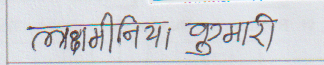 लक्षमीनिया कुमारी